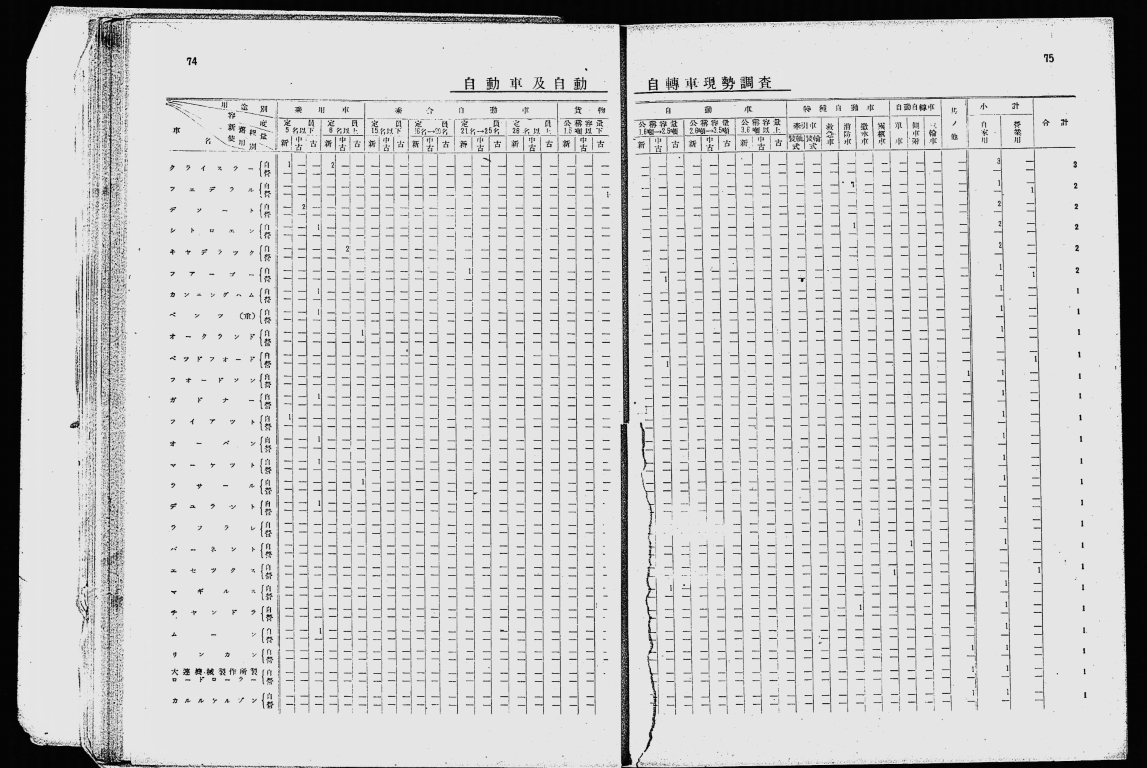 74
75
自動車及自動
自轉車現勢調査
用途別
車名
乘用車
乘合自動車
貨物
自動車
特種自動車
自動自轉車
其ノ他
小計
合計
定員5名以下
定員6名以上
定員15名以下
定員16名→20名
定員21名→25名
定員26名以上
公稱容量1.5噸以下
公稱容量
公稱容量
公稱容量
牽引車
救急車
消防車
撒水車
單車
側車附
三輪車
自家用
營業用
新 中古 古 新 中古 古 新 中古 古 新 中古 古 新 中古 古 新 中古 古 新 中古 古
新 中古 古 新 中古 古 新 中古 古
クライスラー 自 營 1 2 3 3
フエデラル 自 營 1 1 1 2
デソート 自 營 2 2 2
シトロエン 自 營 1 1 2 2
キヤデラツク 自 營 2 2 2
フアーゴー 自 營 1 1 1 1 2
カンニングハム 自 營 1 1 1
ベンツ (重) 自 營 1 1 1
オークランド 自 營 1 1 1
ベツドフオード 自 營 1 1 1
フオードソン 自 營 1 1 1
ガドナー 自 營 1 1 1
フイアツト 自 營 1 1 1
オーベン 自 營 1 1 1
マーケツト 自 營 1 1 1
ラサール 自 營 1 1 1
デユラント 自 營 1 1 1
ラフラレ 自 營 1 1 1
バーネント 自 營 1 1 1
エセツクス 自 營 1 1 1
マギルス 自 營 1 1 1
チヤンドラ 自 營 1 1 1
ムーン 自 營 1 1 1
リンカン 自 營 1 1 1
大連機械製作所製
ロードローラー 自 營 1 1 1
カルルケルブン 自 營 1 1 1